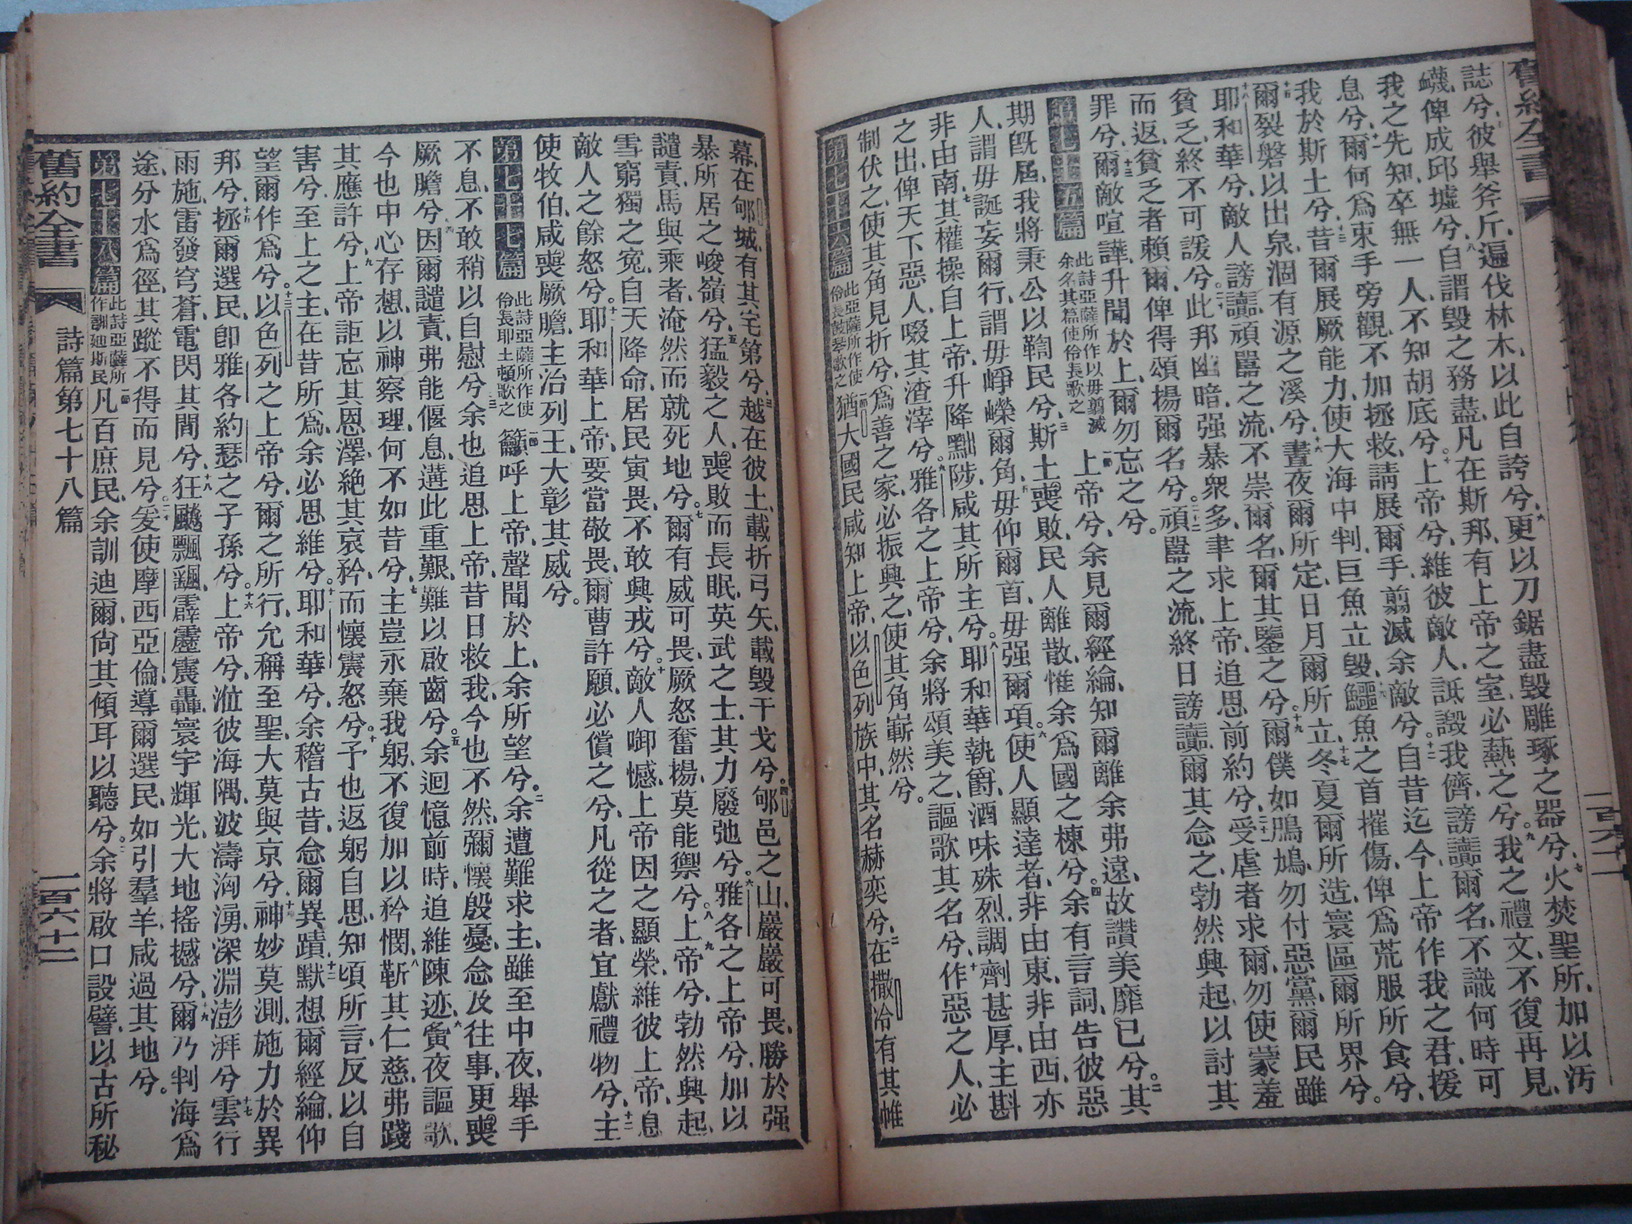 舊約全書
誌兮、彼舉斧斤、遍伐林木、以此自誇兮、更以刀鋸盡毀雕琢之器兮、火焚聖所、加以汚
衊、俾成邱墟兮、自謂毀之務盡、凡在斯邦、有上帝之室、必爇之兮、我之禮文、不復再見、
我之先知、卒無一人、不知胡底兮、上帝兮、維彼敵人、詆毀我儕、謗讟爾名、不識何時可
息兮、爾何爲束手旁觀、不加拯救、請展爾手、翦滅余敵兮、自昔迄今、上帝作我之君、援
我於斯土兮、昔爾展厥能力、使大海中判、巨魚立毀、鱷魚之首摧傷、俾爲荒服所食兮、
爾裂磐以出泉、涸有源之溪兮、晝夜爾所定、日月爾所立、冬夏爾所造、寰區爾所界兮、
耶和華兮、敵人謗讟、頑嚚之流、不崇爾名、爾其鑒之兮、爾僕如鳲鳩、勿付惡黨、爾民雖
貧乏、終不可諼兮、此邦幽暗、强暴衆多、聿求上帝、追思前約兮、受虐者求爾、勿使蒙羞
而返、貧乏者賴爾、俾得頌揚爾名兮、頑嚚之流、終日謗讟、爾其念之、勃然興起、以討其
罪兮、爾敵喧譁、升聞於上、爾勿忘之兮。
第七十五篇 此詩亞薩所作以毋翦滅余名其篇使伶長歌之 上帝兮、余見爾經綸、知爾離余弗遠、故讚美靡已兮、其
期旣屆、我將秉公以鞫民兮、斯土喪敗、民人離散、惟余爲國之棟兮、余有言詞、告彼惡
人、謂毋誕妄爾行、謂毋崢嶸爾角、毋仰爾首、毋强爾項、使人顯達者、非由東、非由西、亦
非由南、其權操自上帝、升降黜陟、咸其所主兮、耶和華執爵、酒味殊烈、調劑甚厚、主斟
之出、俾天下惡人、啜其渣滓兮、雅各之上帝兮、余將頌美之、謳歌其名兮、作惡之人、必
制伏之、使其角見折兮、爲善之家、必振興之、使其角嶄然兮。
第七十六篇 此亞薩所作使伶長鼓琴歌之 猶大國民、咸知上帝、以色列族中、其名赫奕兮、在撒冷有其帷
幕、在郇城、有其宅第兮、越在彼土、載折弓矢、載毀干戈兮、郇邑之山、巖巖可畏、勝於强
暴所居之峻嶺兮、猛毅之人、喪敗而長眠、英武之士、其力廢弛兮、雅各之上帝兮、加以
譴責、馬與乘者、淹然而就死地兮、爾有威可畏、厥怒奮揚、莫能禦兮、上帝兮、勃然興起、
雪窮獨之冤、自天降命、居民寅畏、不敢興戎兮、敵人啣憾、上帝因之顯榮、維彼上帝、息
敵人之餘怒兮、耶和華上帝、要當敬畏、爾曹許願、必償之兮、凡從之者、宜獻禮物兮、主
使牧伯、咸喪厥膽、主治列王、大彰其威兮。
第七十七篇 此詩亞薩所作使伶長耶土頓歌之 籲呼上帝、聲聞於上、余所望兮、余遭難求主、雖至中夜、舉手
不息、不敢稍以自慰兮、余也追思上帝、昔日救我、今也不然、彌懷殷憂、念及往事、更喪
厥膽兮、因爾譴責、弗能偃息、遘此重艱、難以啟齒兮、余迴憶前時、追維陳迹、夤夜謳歌、
今也中心存想、以神察理、何不如昔兮、主豈永棄我躬、不復加以矜憫、靳其仁慈、弗踐
其應許兮、上帝詎忘其恩澤、絕其哀矜、而懷震怒兮、予也返躬自思、知頃所言、反以自
害兮、至上之主、在昔所爲、余必思維兮、耶和華兮、余稽古昔、念爾異蹟、默想爾經綸、仰
望爾作爲兮、以色列之上帝兮、爾之所行、允稱至聖、大莫與京兮、神妙莫測、施力於異
邦兮、拯爾選民、卽雅各約瑟之子孫兮、上帝兮、涖彼海隅、波濤洶湧、深淵澎湃兮、雲行
雨施、雷發穹蒼、電閃其間兮、狂飈飄颻、霹靂震轟、寰宇輝光、大地搖撼兮、爾乃判海爲
途、分水爲徑、其蹤不得而見兮、爰使摩西亞倫、導爾選民、如引羣羊、咸過其地兮。
第七十八篇 此詩亞薩所作訓廸斯民 凡百庶民、余訓迪爾、尙其傾耳以聽兮、余將啟口設譬、以古所秘
舊約全書 詩篇第七十八篇 一百六十二